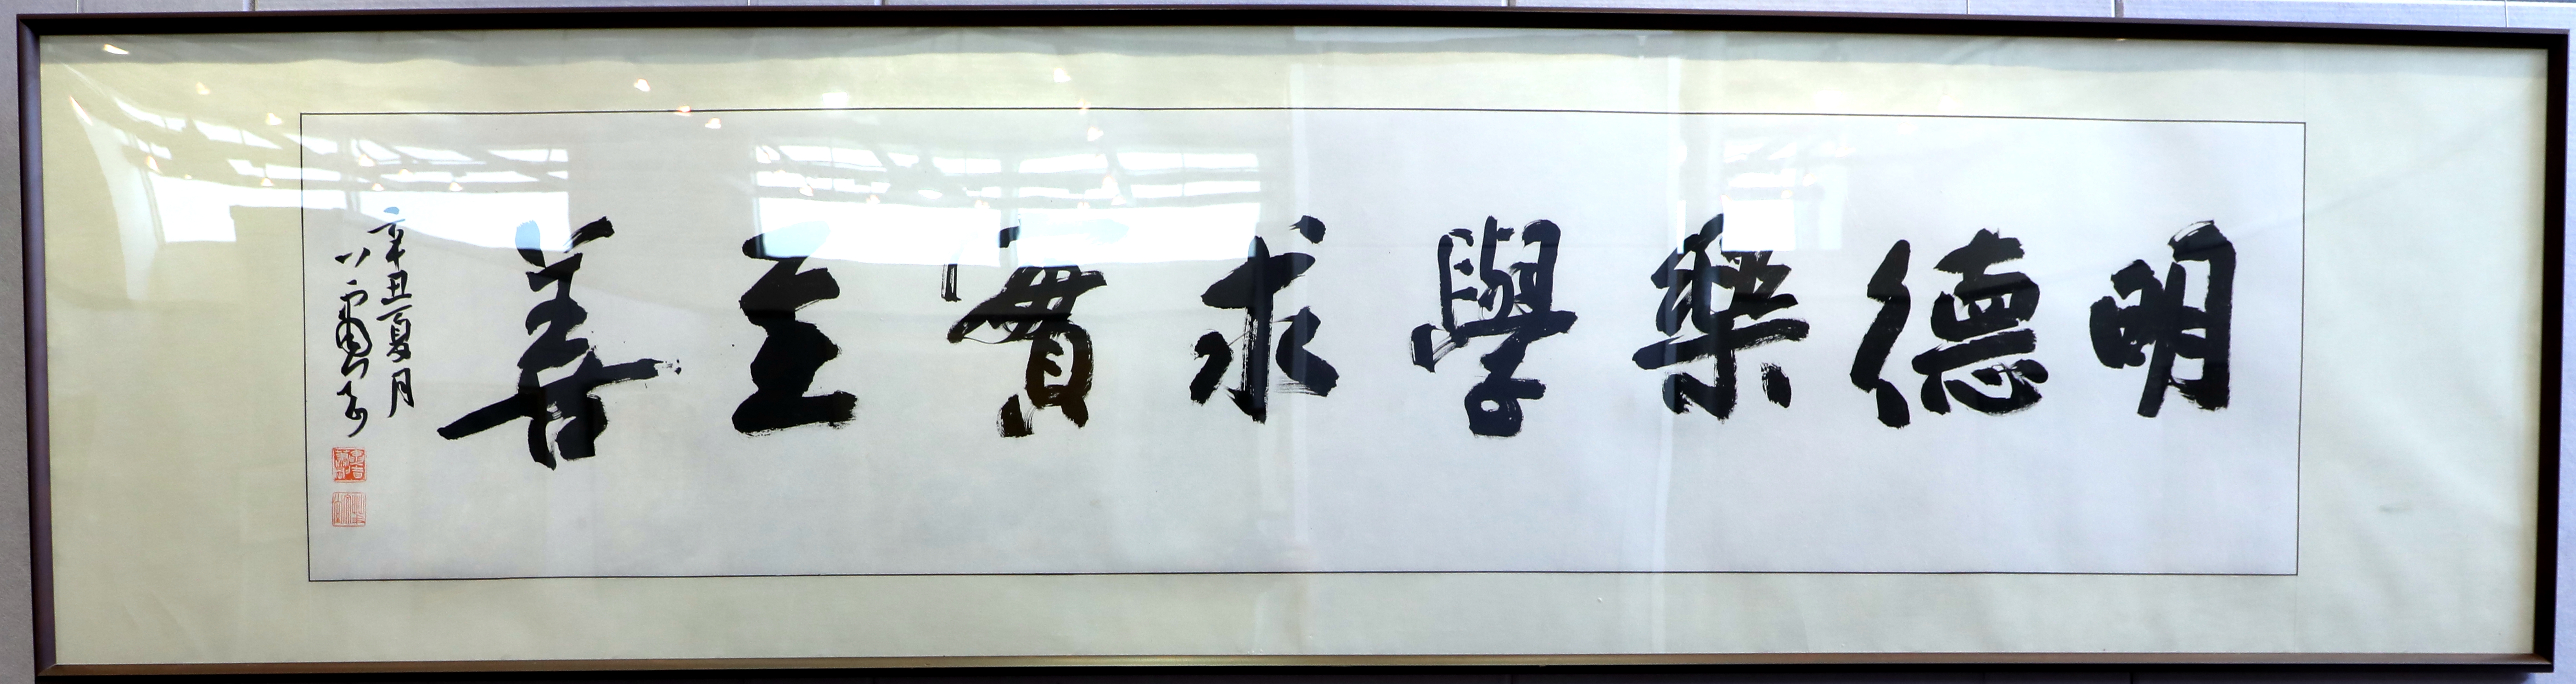 明德樂學求實至善
辛丑夏月